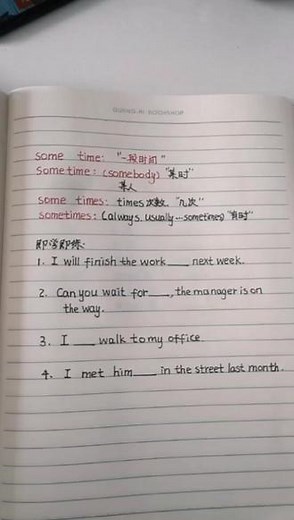 GUANGLIN BOOKSHOP
Some time: "一段时间"
Sometime: (somebody) "某时"
某人
some times: times次数. "几次"
sometimes: (always. usually--sometimes) "有时"
即学即练:
1. I will finish the work ___ next week.
2. Can you wait for ___, the manager is on
the way.
3. I ___ walk to my office.
4. I met him ___ in the street last month.